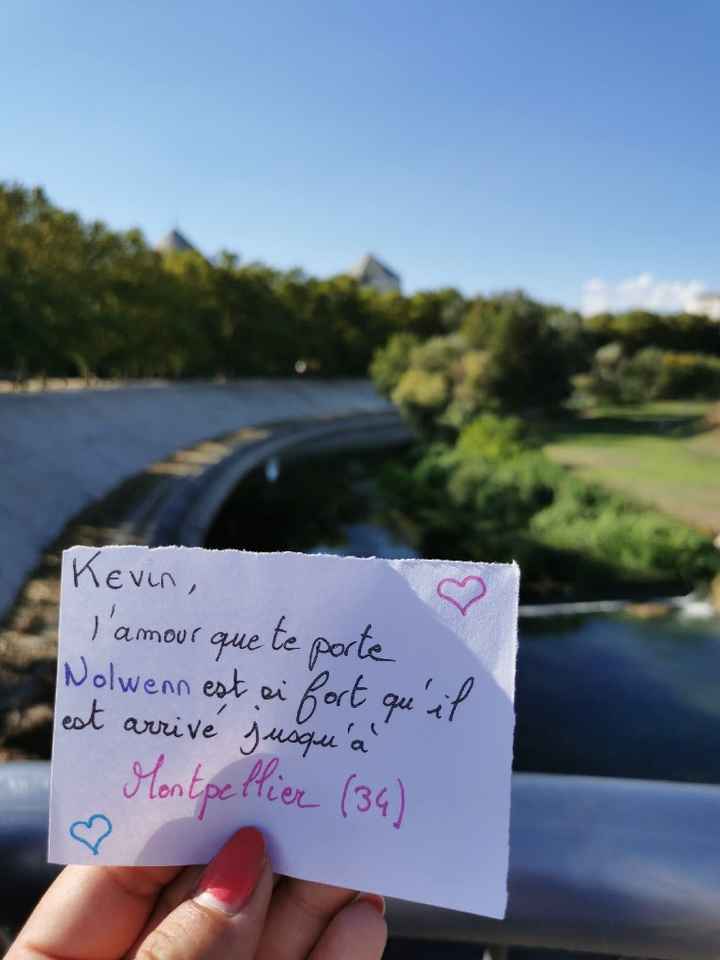 Kevin,
l'amour que te porte
Nolwenn est si fort qu'il
est arrivé jusqu'à
Montpellier (34)